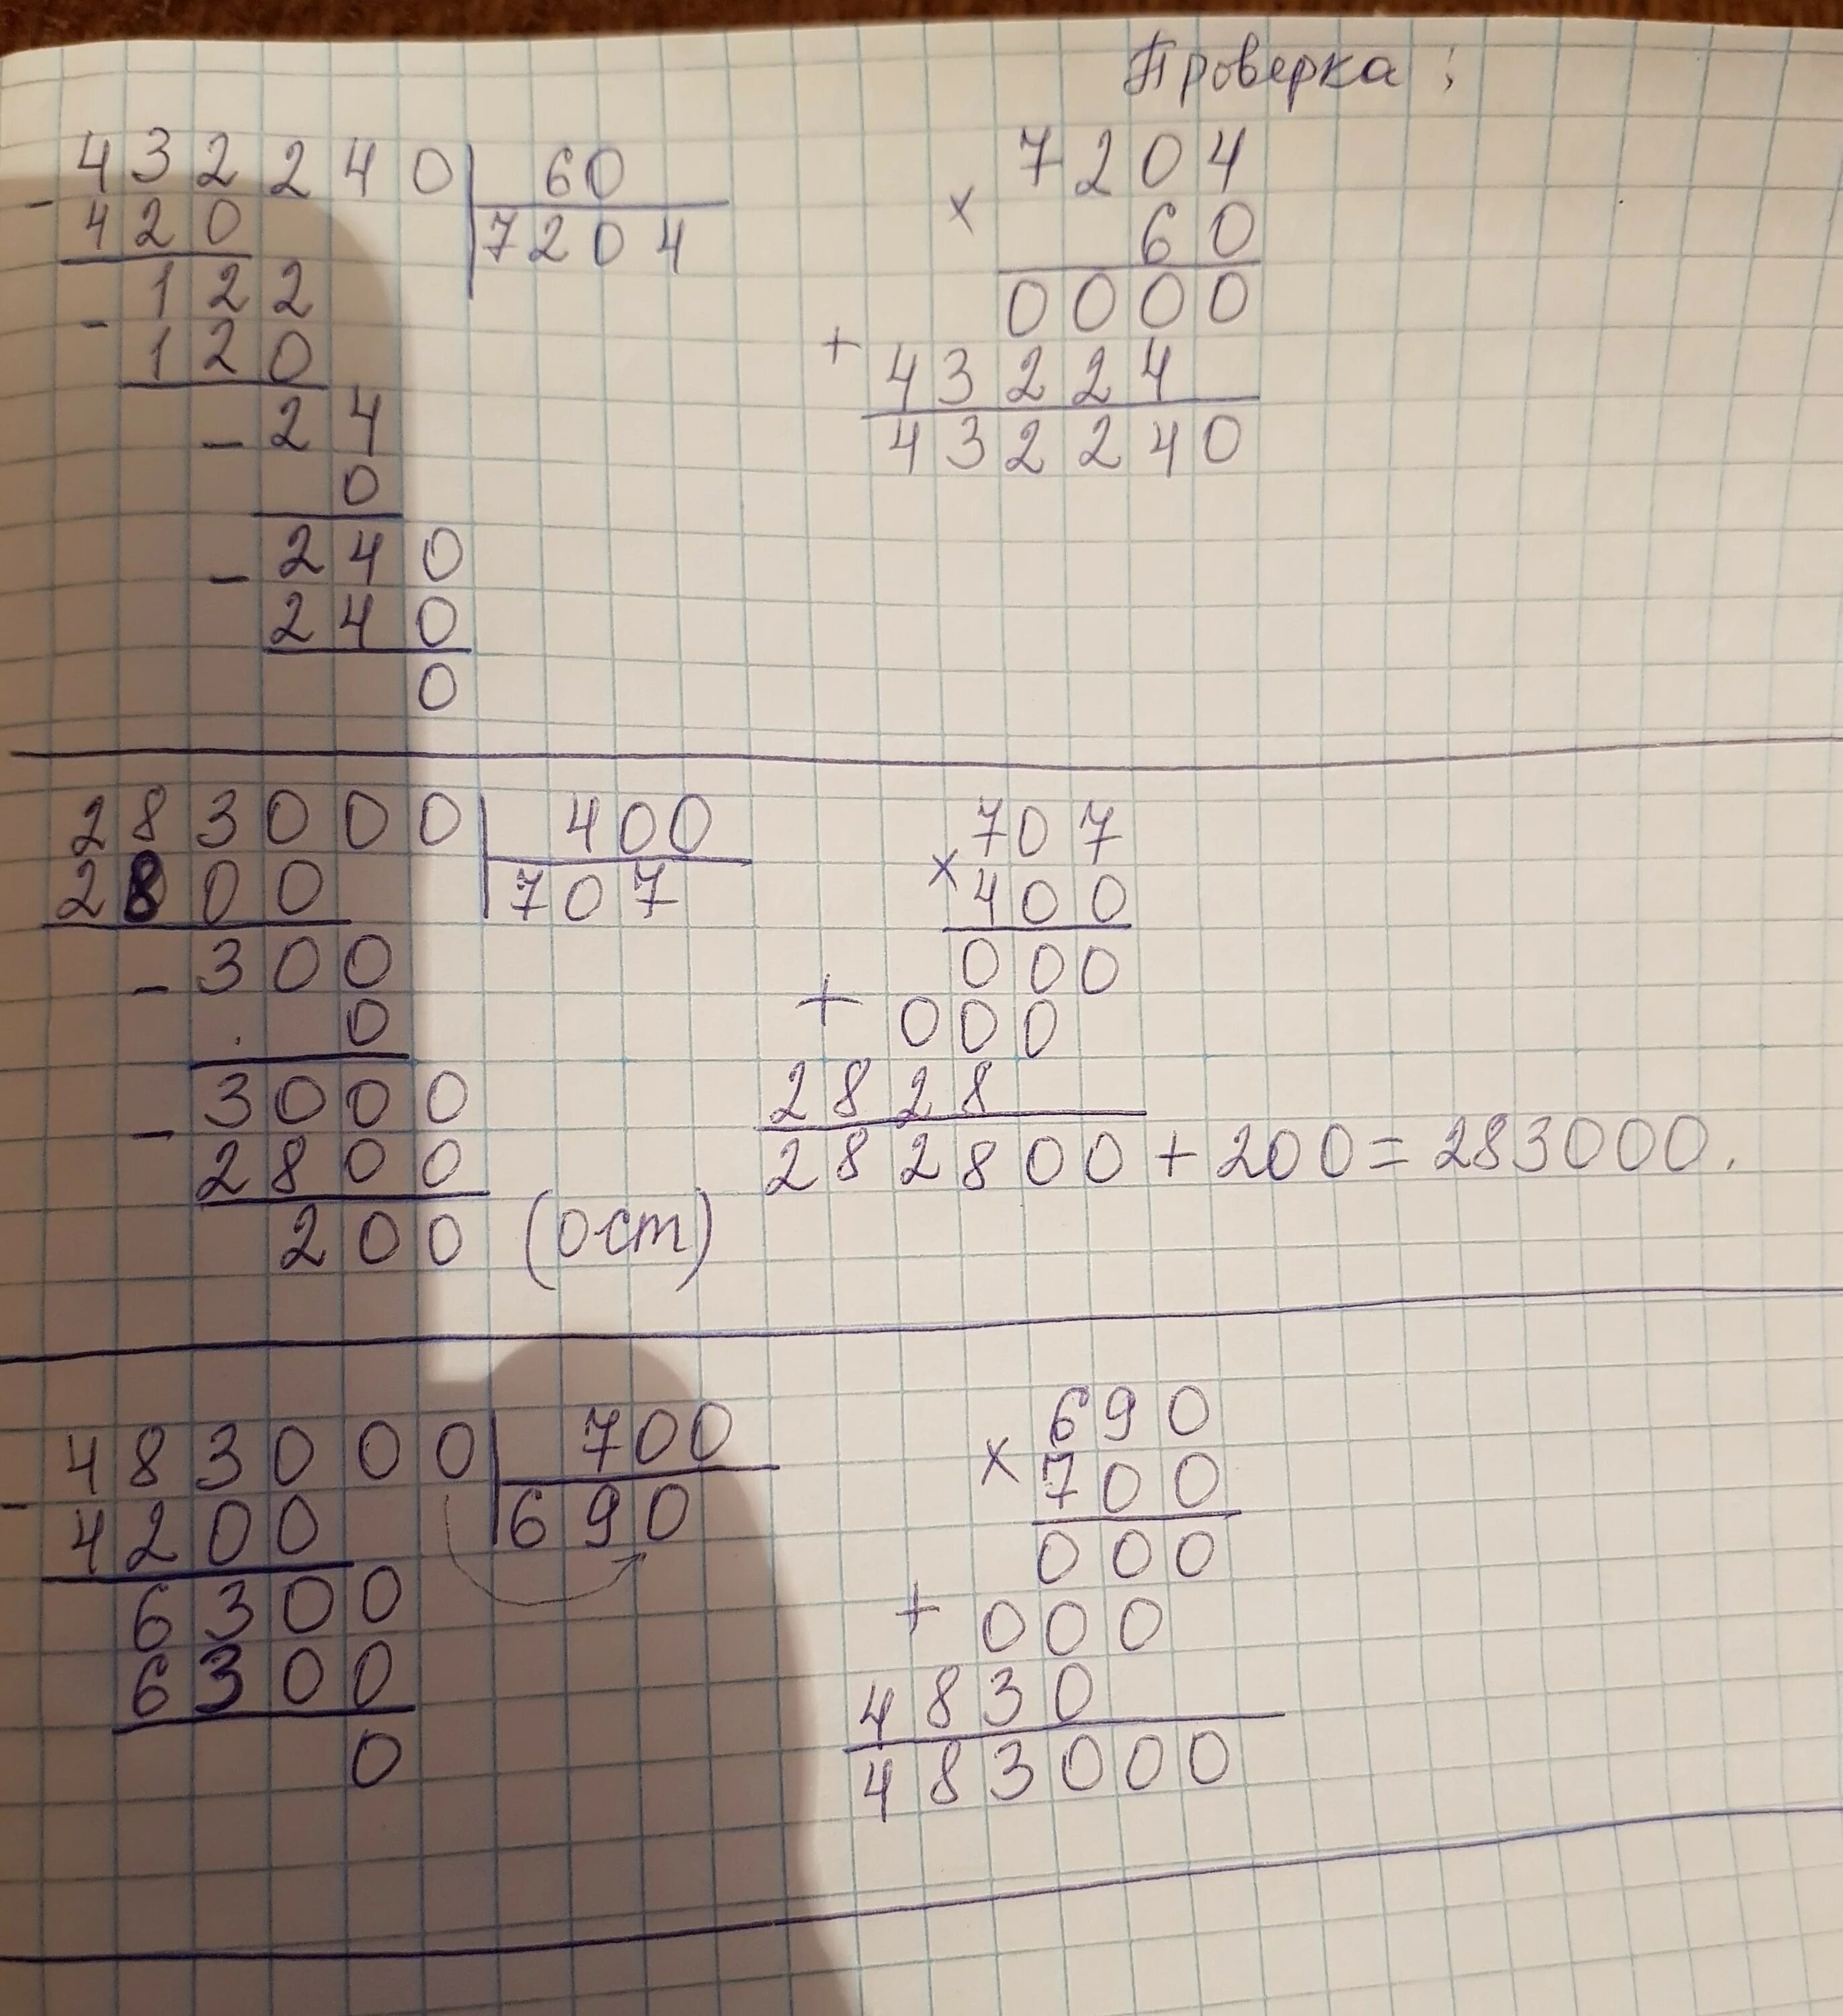 Проверка:
- 432240 | 60
420 | 7204
- 122
120
- 24
0
- 240
240
0
7204
× 60
0000
+ 43224
432240
283000 | 400
2800 | 707
- 300
0
- 3000
2800
200 (ост)
707
× 400
000
+ 000
2828
282800 + 200 = 283000.
- 483000 | 700
4200 | 690
6300
6300
0
690
× 700
000
+ 000
4830
483000